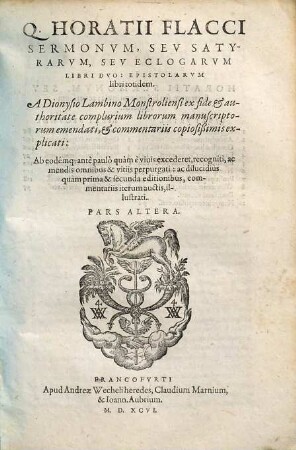 Q. HORATII FLACCI
SERMONVM, SEV SATY-
RARVM, SEV ECLOGARVM
LIBRI DVO: EPISTOLARVM
libri totidem.
A Dionysio Lambino Monstroliensi ex fide & au-
thoritate complurium librorum manuscripto-
rum emendati, & commentariis copiosissimis ex-
plicati:
Ab eodémque antè paulò quàm è viuis excederet, recogniti, ac
mendis omnibus & vitiis perpurgati: ac dilucidius
quàm prima & secunda editionibus, com-
mentariis iterum auctis, il-
lustrati.
PARS ALTERA.
FRANCOFVRTI
Apud Andreæ Wecheli heredes, Claudium Marnium,
& Ioann. Aubrium.
M. D. XCVI.